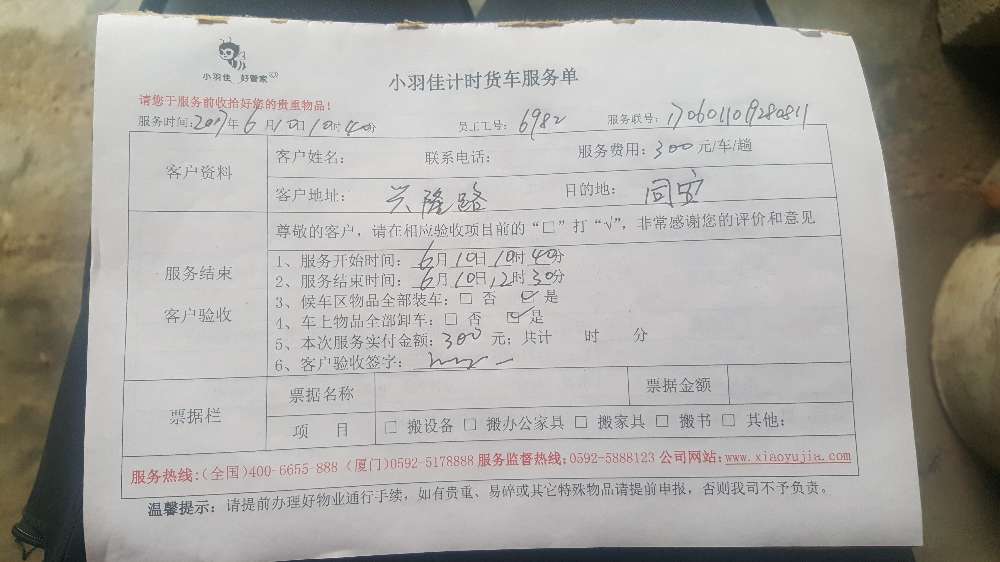 小羽佳 好管家
小羽佳计时货车服务单
请您于服务前收拾好您的贵重物品!
服务时间:2017年6月10日10时40分 员工工号: 6982 服务联号: 170601109280811
客户资料
客户姓名: 联系电话: 服务费用: 300元/车/趟
客户地址: 兴隆路 目的地: 同安
服务结束
客户验收
尊敬的客户, 请在相应验收项目前的“□”打“√”, 非常感谢您的评价和意见
1、服务开始时间: 6月10日10时40分
2、服务结束时间: 6月10日12时30分
3、候车区物品全部装车: □ 否 ☑ 是
4、车上物品全部卸车: □ 否 ☑ 是
5、本次服务实付金额: 300 元; 共计 时 分
6、客户验收签字:
票据栏
票据名称 票据金额
项 目 □ 搬设备 □ 搬办公家具 □ 搬家具 □ 搬书 □ 其他:
服务热线:(全国)400-6655-888 (厦门)0592-5178888 服务监督热线:0592-5888123 公司网站:www.xiaoyujia.com
温馨提示: 请提前办理好物业通行手续, 如有贵重、易碎或其它特殊物品请提前申报, 否则我司不予负责。